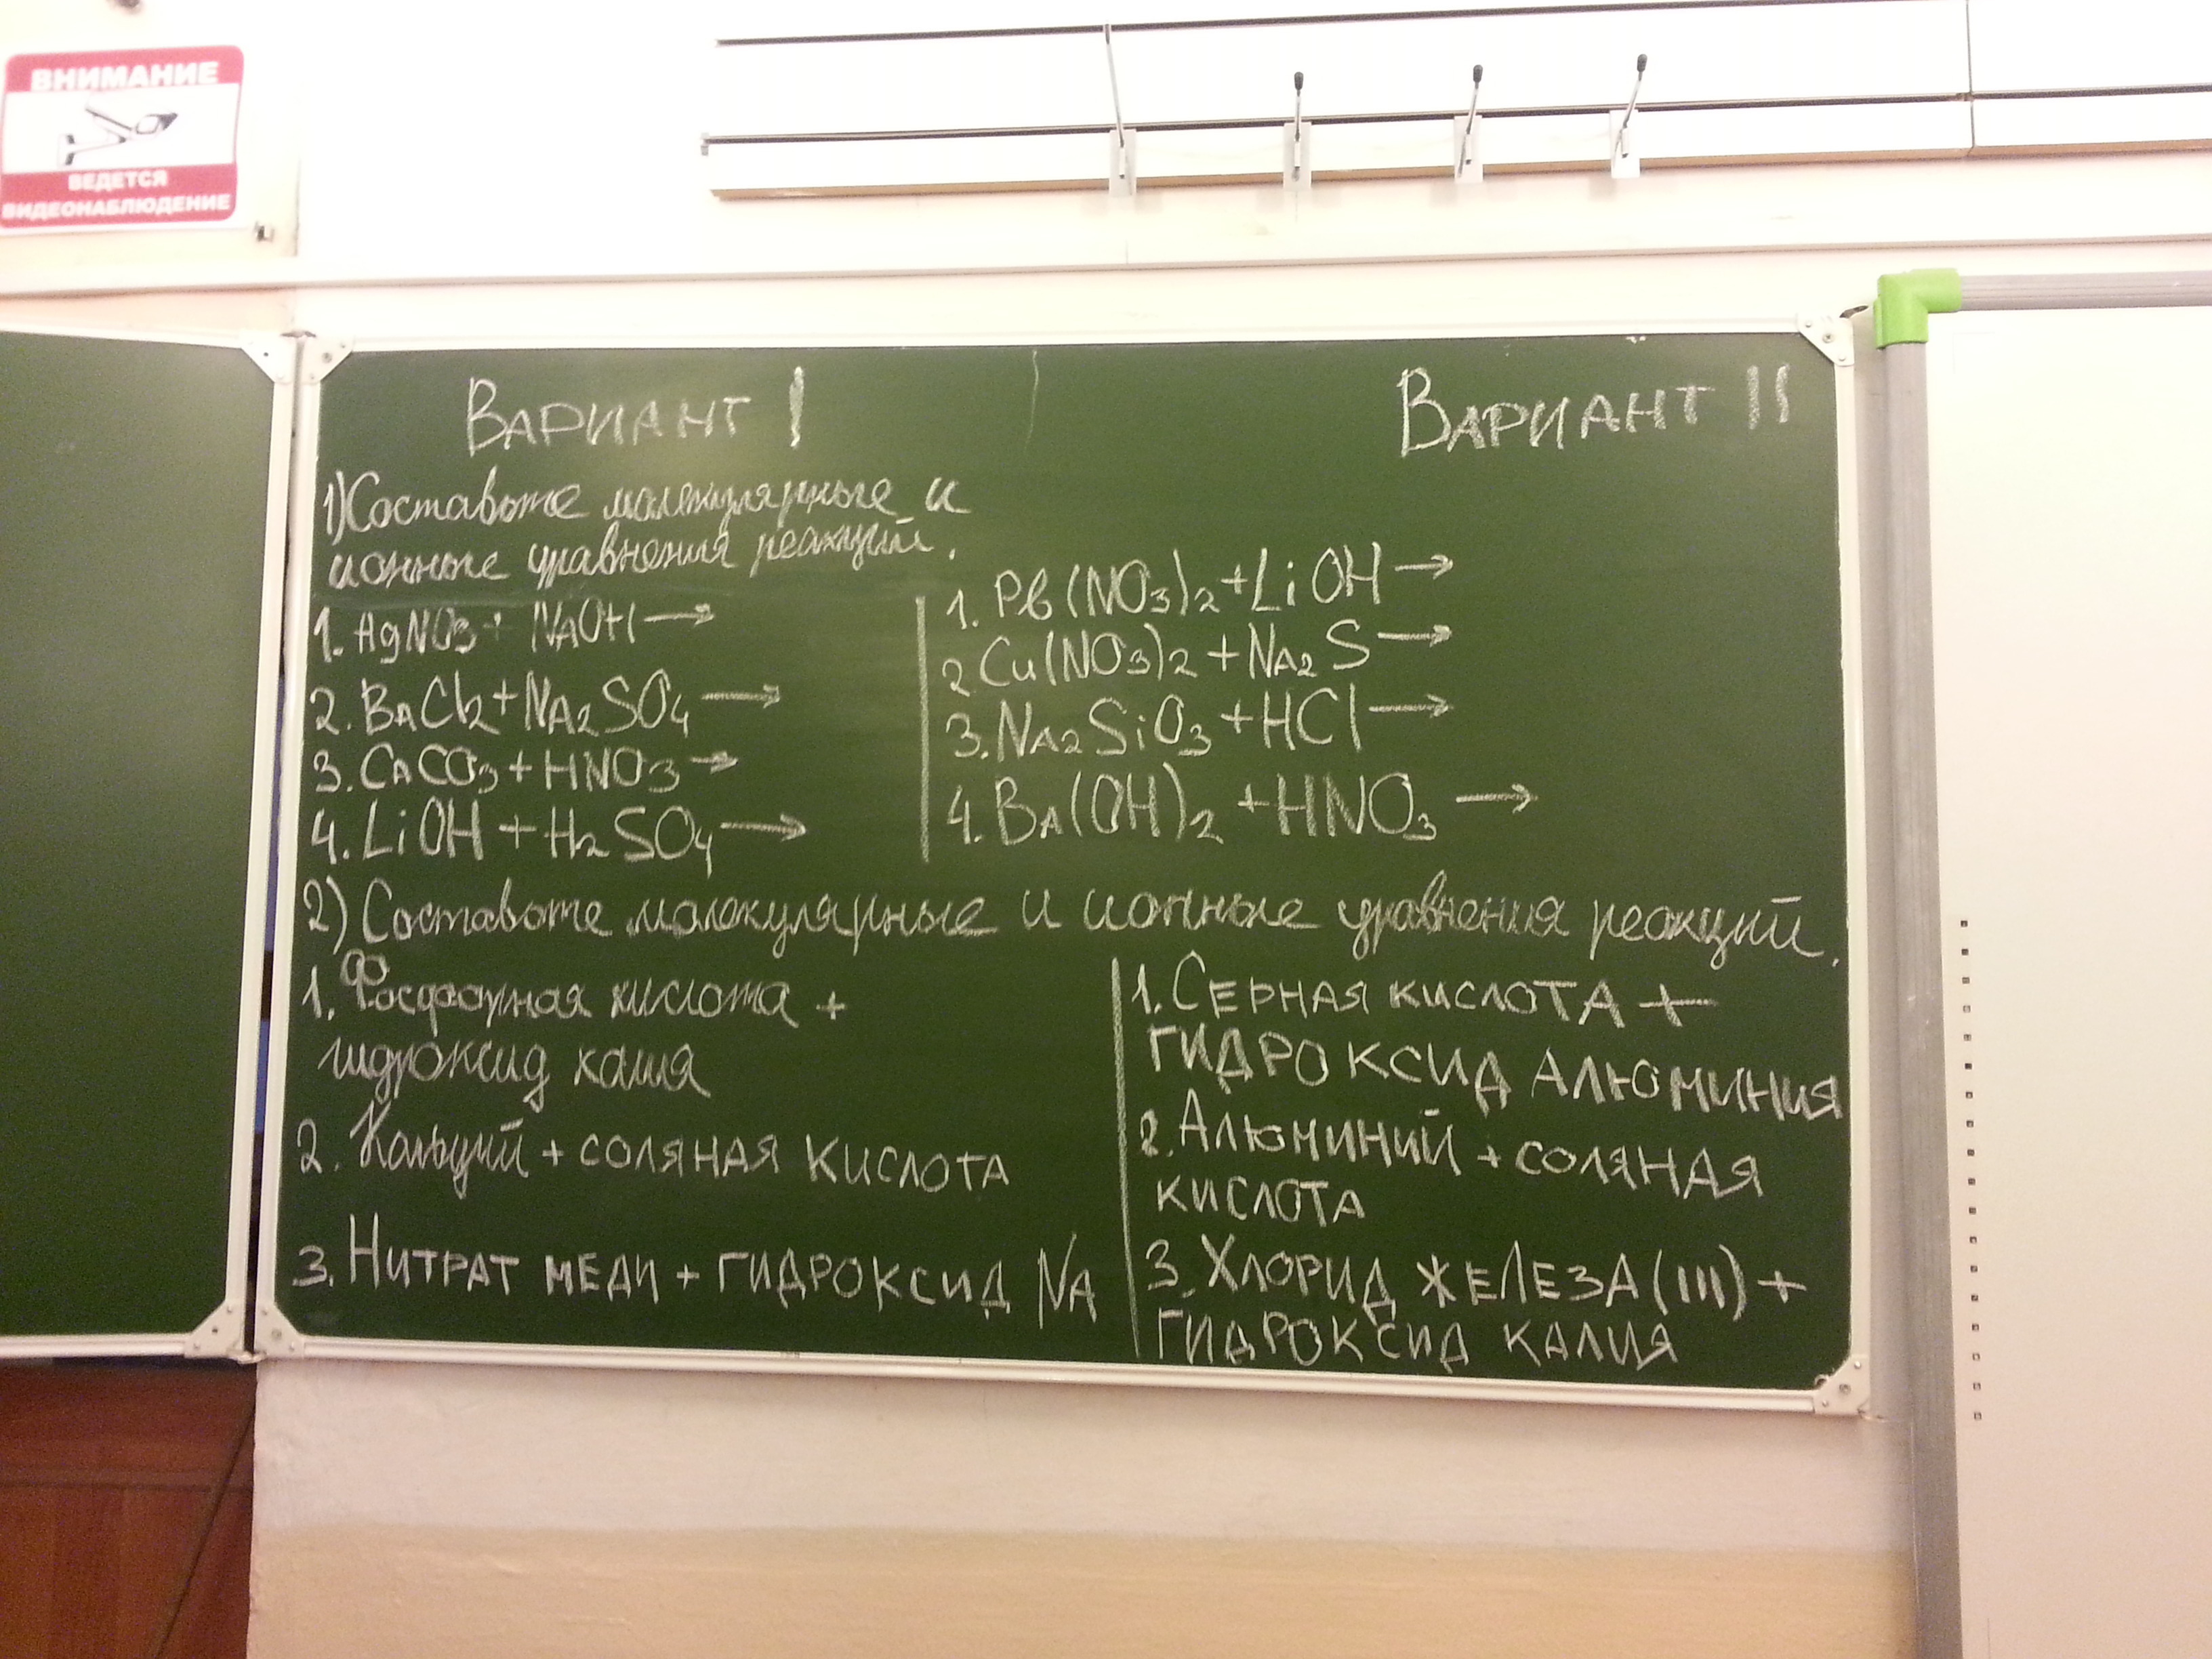 ВНИМАНИЕ
ВЕДЕТСЯ
ВИДЕОНАБЛЮДЕНИЕ
ВАРИАНТ I
1) Составьте молекулярные и
ионные уравнения реакций.
1. AgNO3 + NAOH →
2. BACl2 + NA2SO4 →
3. CACO3 + HNO3 →
4. LiOH + H2SO4 →
ВАРИАНТ II
1. Pb(NO3)2 + LiOH →
2 Cu(NO3)2 + NA2S →
3. NA2SiO3 + HCl →
4. BA(OH)2 + HNO3 →
2) Составьте молекулярные и ионные уравнения реакций.
1. Фосфорная кислота +
гидроксид калия
2. Кальций + СОЛЯНАЯ КИСЛОТА
3. НИТРАТ МЕДИ + ГИДРОКСИД NA
1. СЕРНАЯ КИСЛОТА +
ГИДРОКСИД АЛЮМИНИЯ
2. АЛЮМИНИЙ + СОЛЯНАЯ
КИСЛОТА
3. ХЛОРИД ЖЕЛЕЗА (III) +
ГИДРОКСИД КАЛИЯ